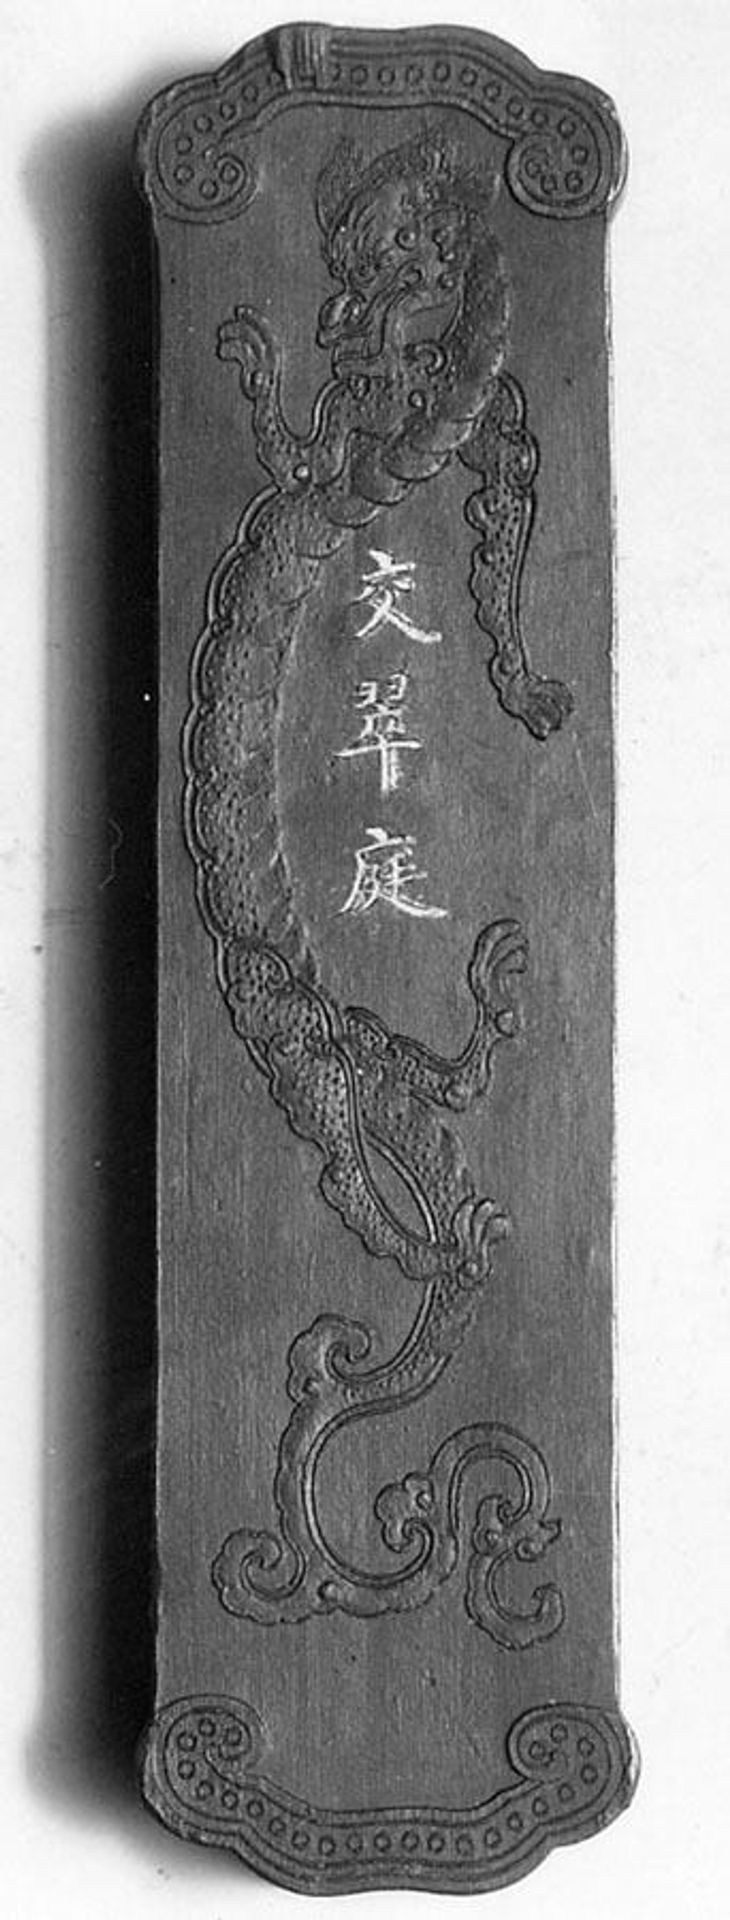 交翠庭